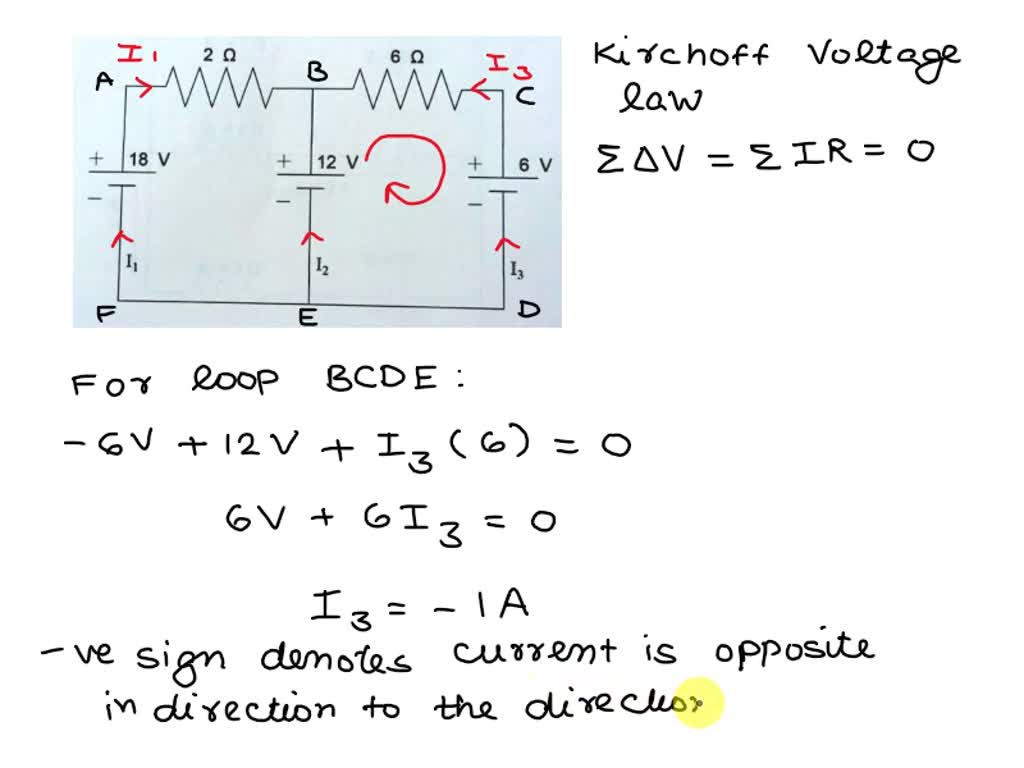 I1 2 Ω B 6 Ω I3
A C
+ 18 V + 12 V + 6 V
− − −
I1 I2 I3
F E D
Kirchoff Voltage
law
ΣΔV = ΣIR = 0
For loop BCDE:
-6V + 12V + I3(6) = 0
6V + 6I3 = 0
I3 = -1A
-ve sign denotes current is opposite
in direction to the direction